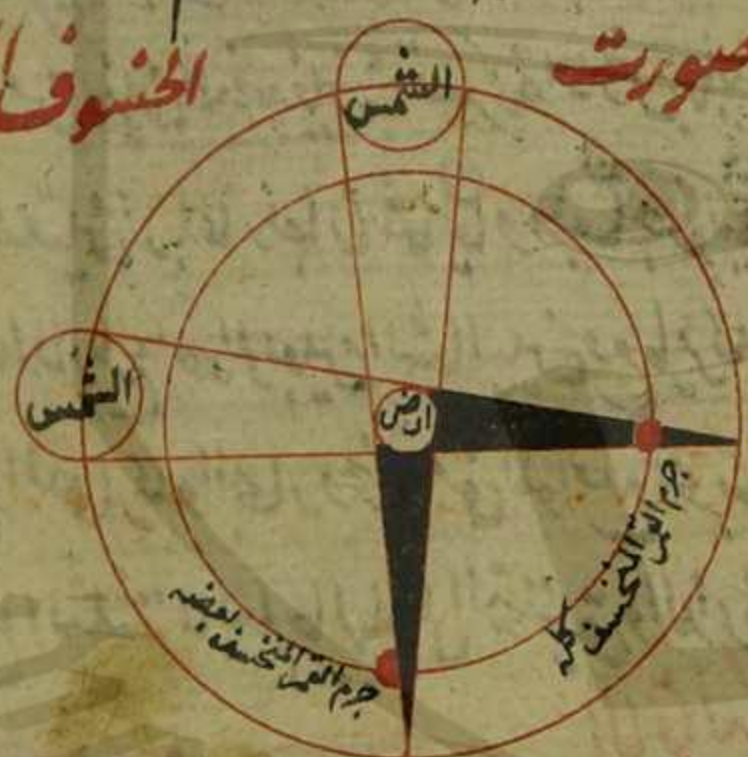 صورت الخسوف
الشمس
الشمس
ارض
جرم القمر المنخسف كله
جرم القمر المنخسف بعضه